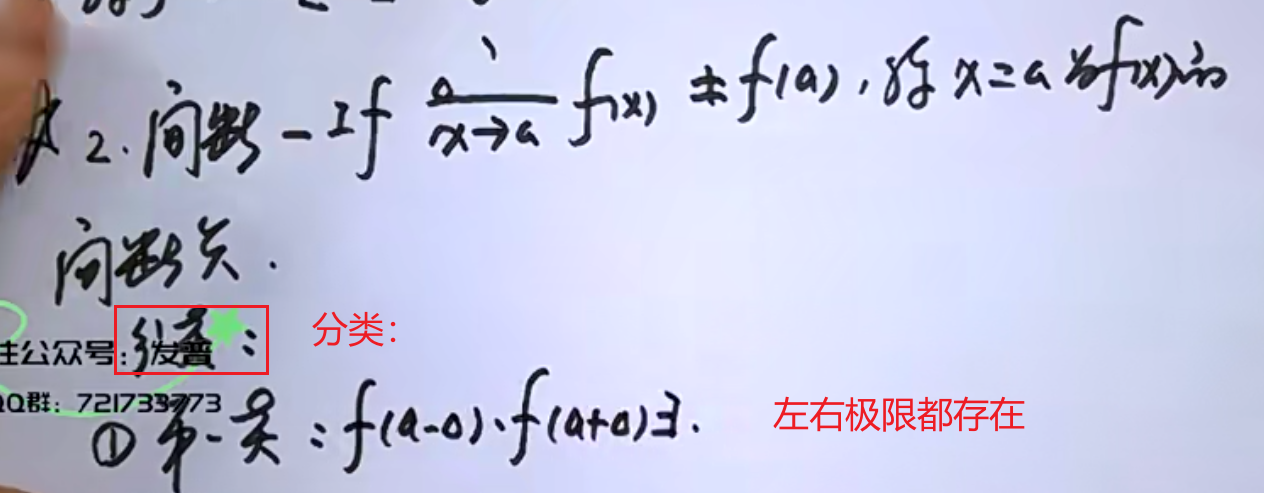 2. 间断 - If lim x→a f(x) ≠ f(a), 称 x=a 为f(x)的
间断点.
分类:
分类:
注公众号:发普
QQ群: 721733773
① 第一类: f(a-0)、f(a+0)∃.
左右极限都存在